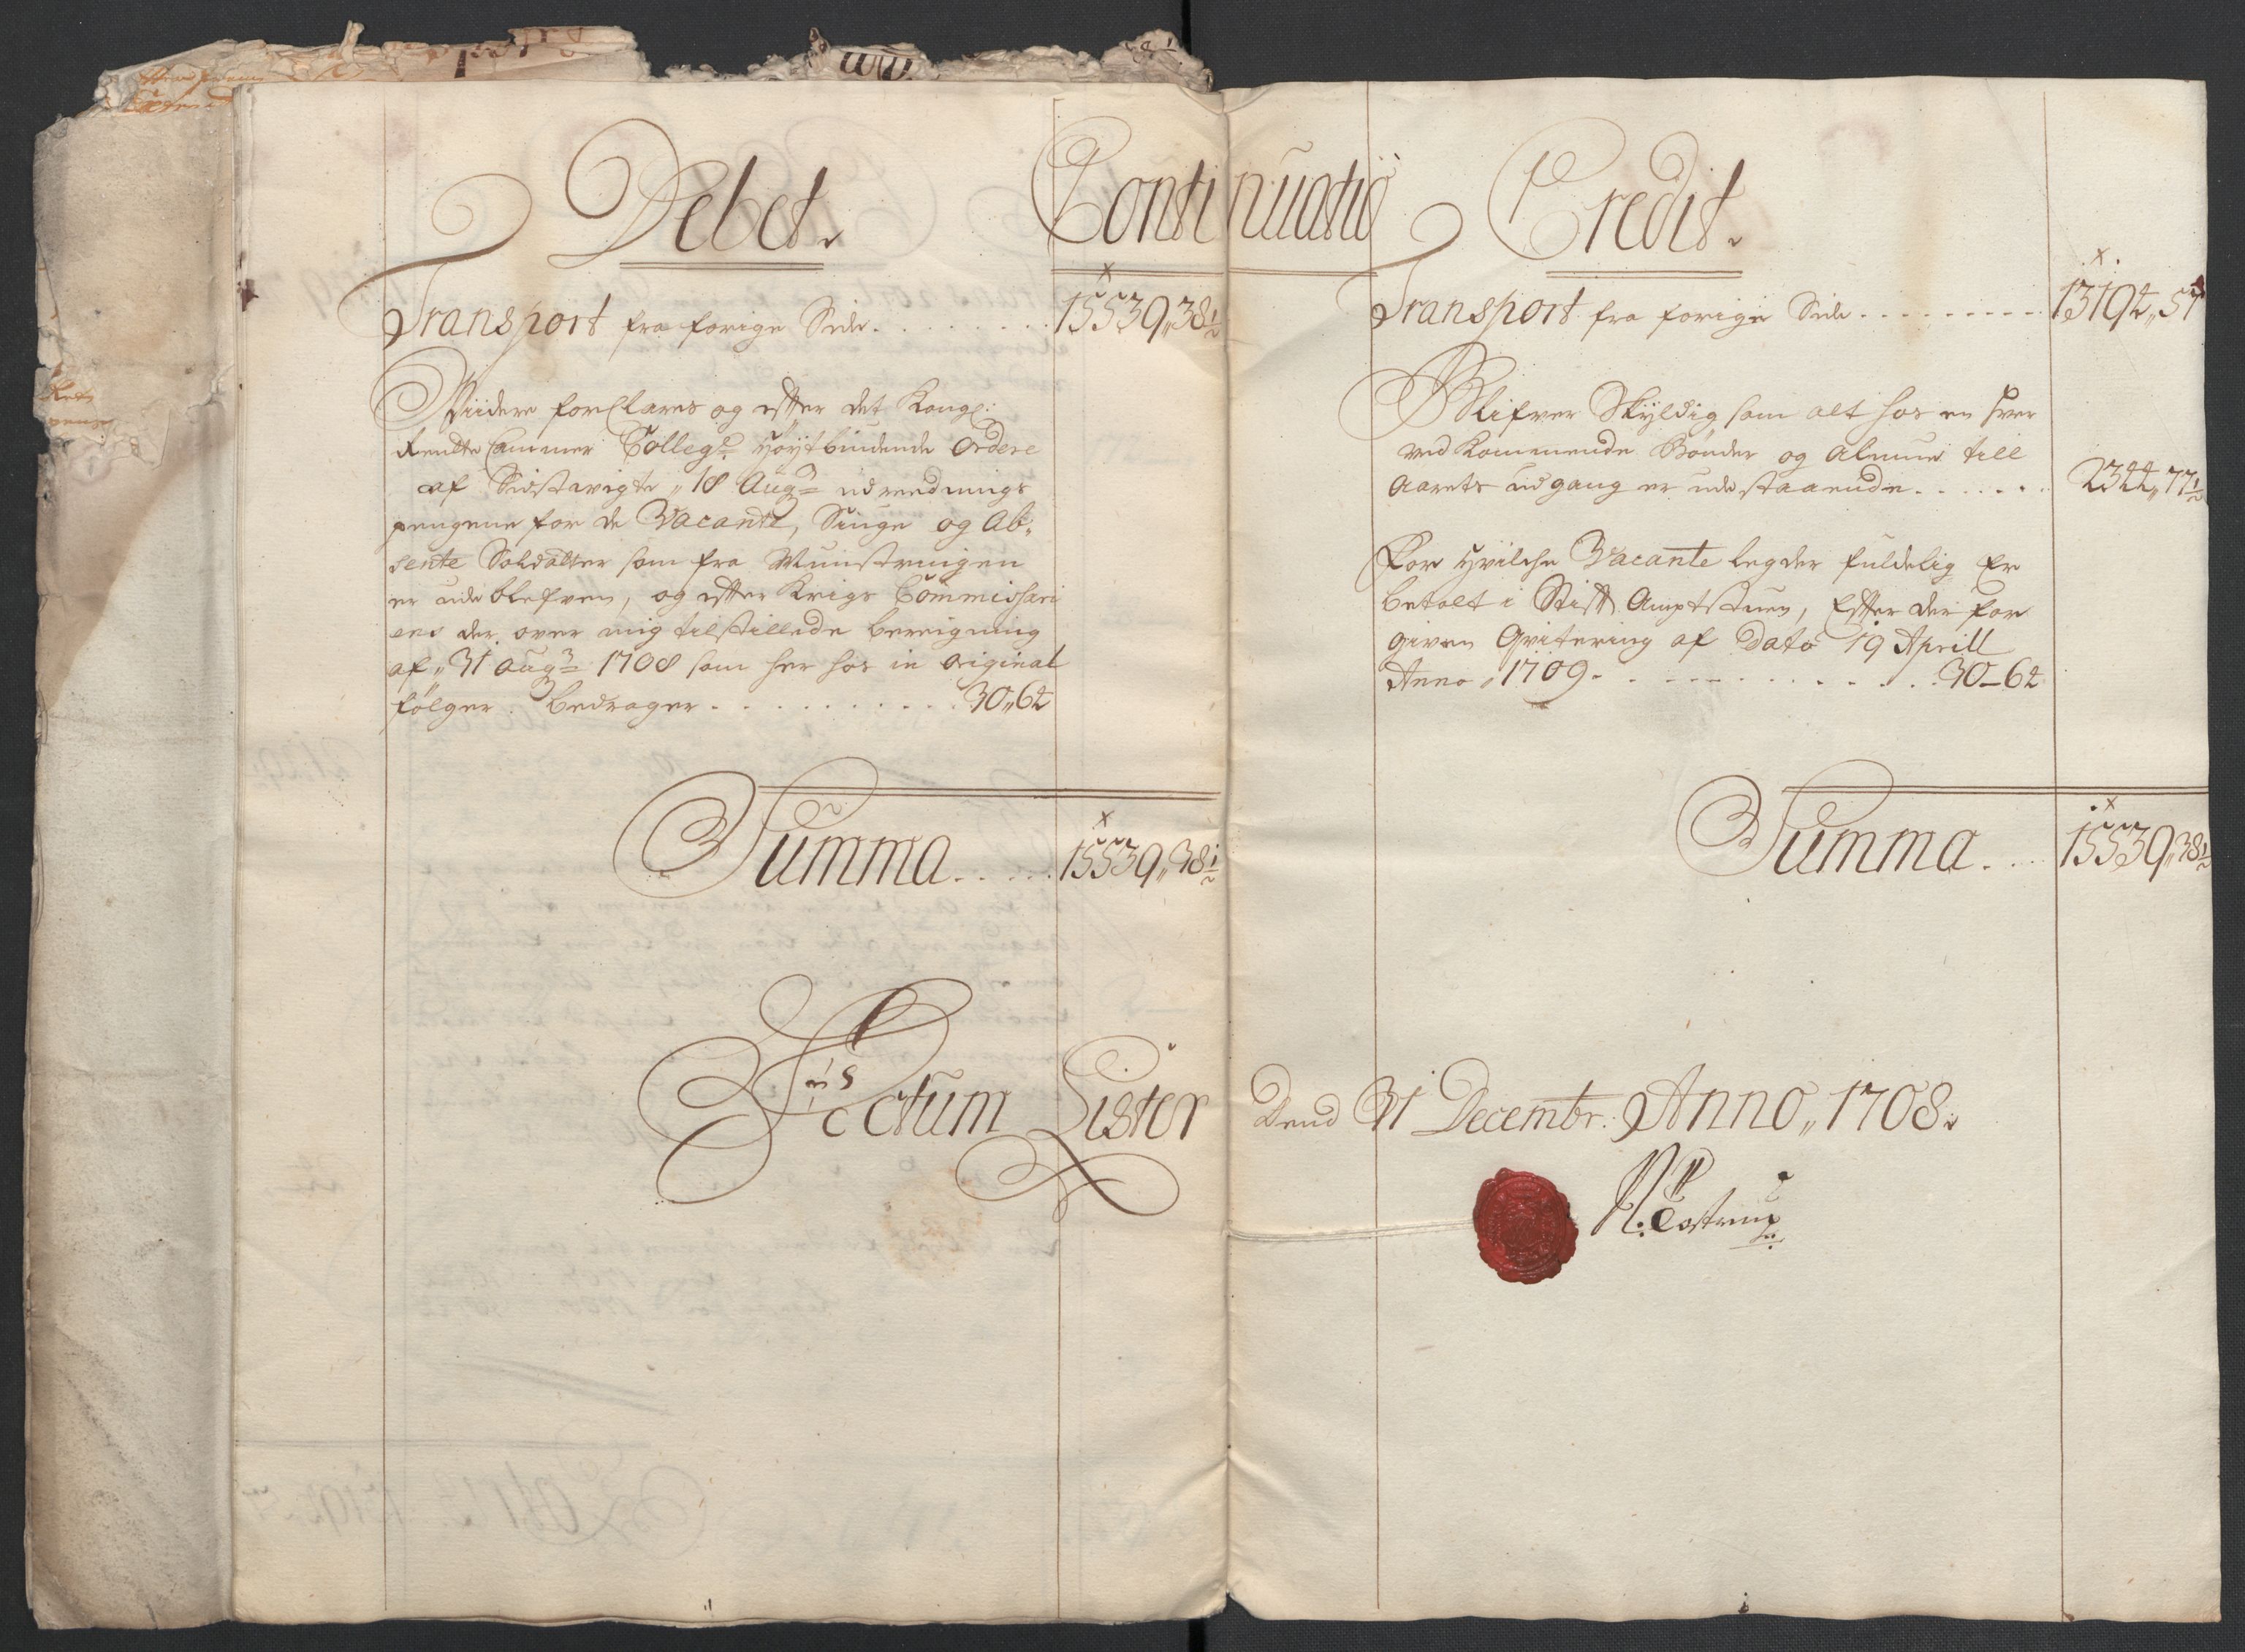 Debet.
Continuatio
Credit.
Transport fra forige Side . . . . . . . . 15539„38½
Viidere forClares og efter det Kongl:
Rendte Cammer Collegÿ Høytbiudende Ordere
af Sidstavigte „18 Aug: udreednings
pengene for de Vacante, Siuge og Ab-
sente Soldatter som fra Munstringen
er ude blefven, og efter Krigs Commissari
ens der over mig tilstillede bereigning
af „31 Aug: 1708 som her hos in original
følger bedrager . . . . . . . . . 30„64
Summa . . . . . 15539„38½
Transport fra forige Side . . . . . . . . . 13194„57
Blifver Skyldig som alt hos en hver
ved Kommende Bønder og Almue till
Aarets udgang er ude staaende . . . . . . . 2344„77½
For hvilche Vacante legder fuldelig Er
betalt i Stift Amptstuen, Efter der for
given Qvitering af Dato 19 Aprill
Anno 1709 . . . . . . . . . . . . 30–64
Summa . . . 15539„38½
Sister Dend 31 Decembr: Anno„1708.